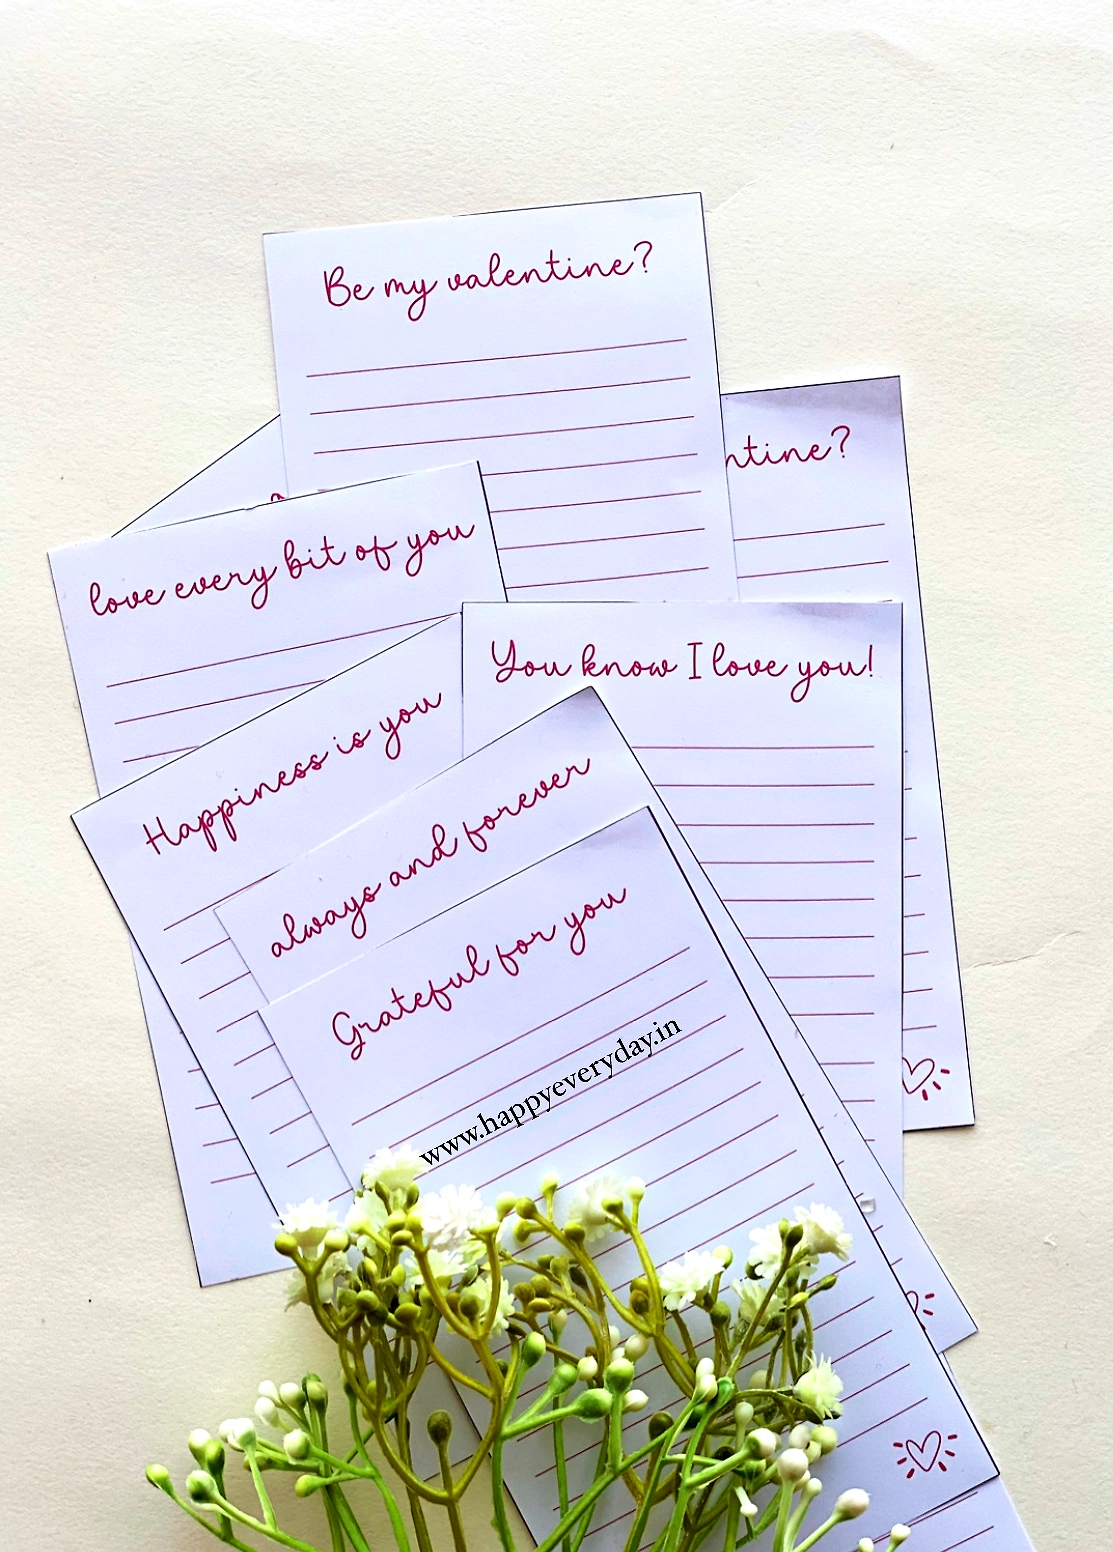 Be my valentine?
ntine?
love every bit of you
You know I love you!
Happiness is you
always and forever
Grateful for you
www.happyeveryday.in